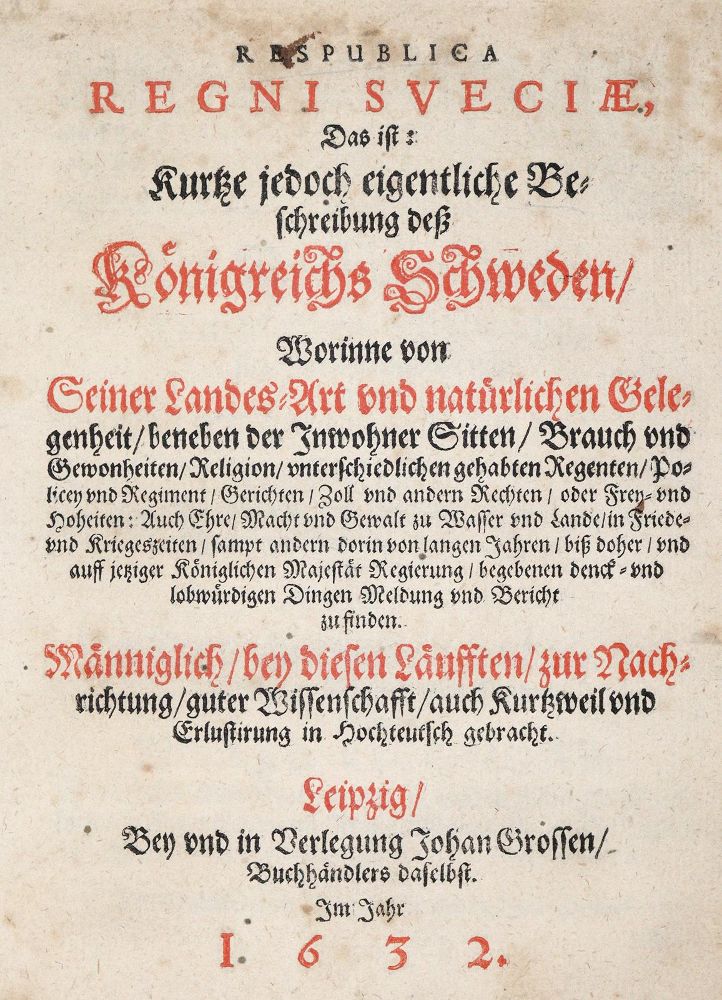 RESPUBLICA
REGNI SVECIÆ,
Das ist:
Kurtze jedoch eigentliche Be-
schreibung deß
Königreichs Schweden/
Worinne von
Seiner Landes-Art vnd natürlichen Gele-
genheit/ beneben der Inwohner Sitten/ Brauch vnd
Gewonheiten/ Religion/ vnterschiedlichen gehabten Regenten/ Po-
licey vnd Regiment/ Gerichten/ Zoll vnd andern Rechten/ oder Frey- vnd
Hoheiten: Auch Ehre/ Macht vnd Gewalt zu Wasser vnd Lande/ in Friede-
vnd Kriegeszeiten/ sampt andern dorin von langen Jahren/ biß doher/ vnd
auff jetziger Königlichen Majestät Regierung/ begebenen denck- vnd
lobwürdigen Dingen Meldung vnd Bericht
zu finden.
Männiglich/ bey diesen Läufften/ zur Nach-
richtung/ guter Wissenschafft/ auch Kurtzweil vnd
Erlustirung in Hochteutsch gebracht.
Leipzig/
Bey vnd in Verlegung Johan Grossen/
Buchhändlers daselbst.
Im Jahr
1632.